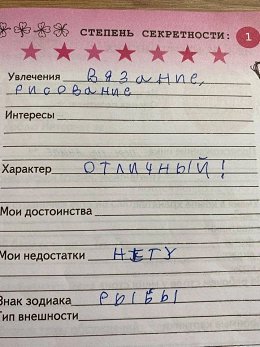 СТЕПЕНЬ СЕКРЕТНОСТИ: 1
Увлечения вязание,
рисование
Интересы
Характер ОТЛИЧНЫЙ!
Мои достоинства
Мои недостатки НЕТУ
Знак зодиака РЫБЫ
Тип внешности